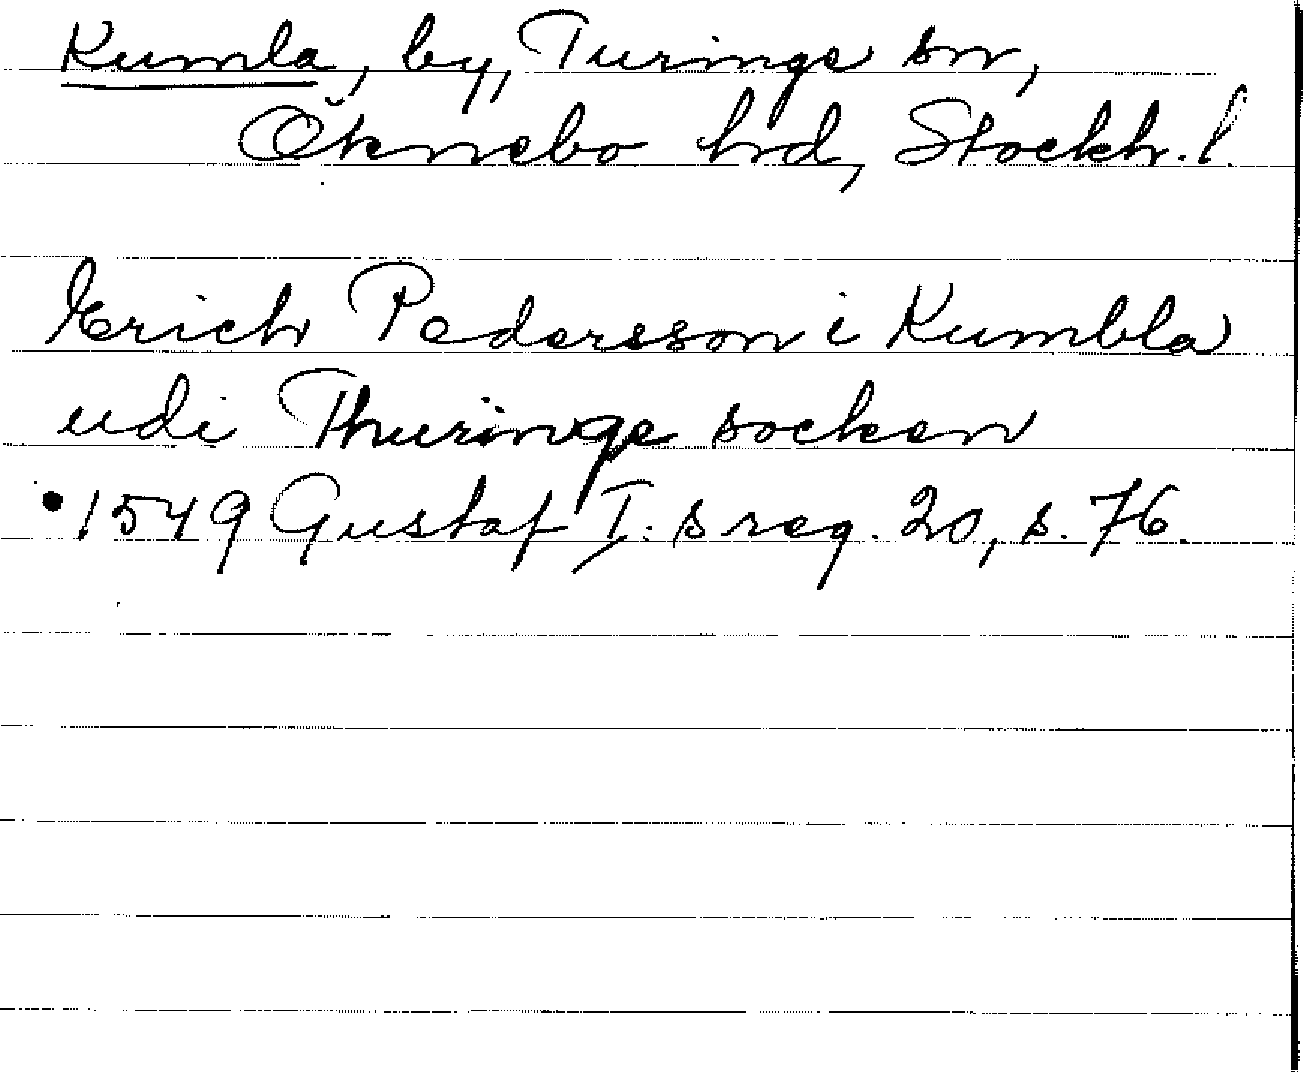 Kumla, by, Turinge sn,
Öknebo hrd, Stockh. l.
Erich Pedersson i Kumbla
udi Thuringe socken
• 1549 Gustaf I:s reg. 20, s. 76.